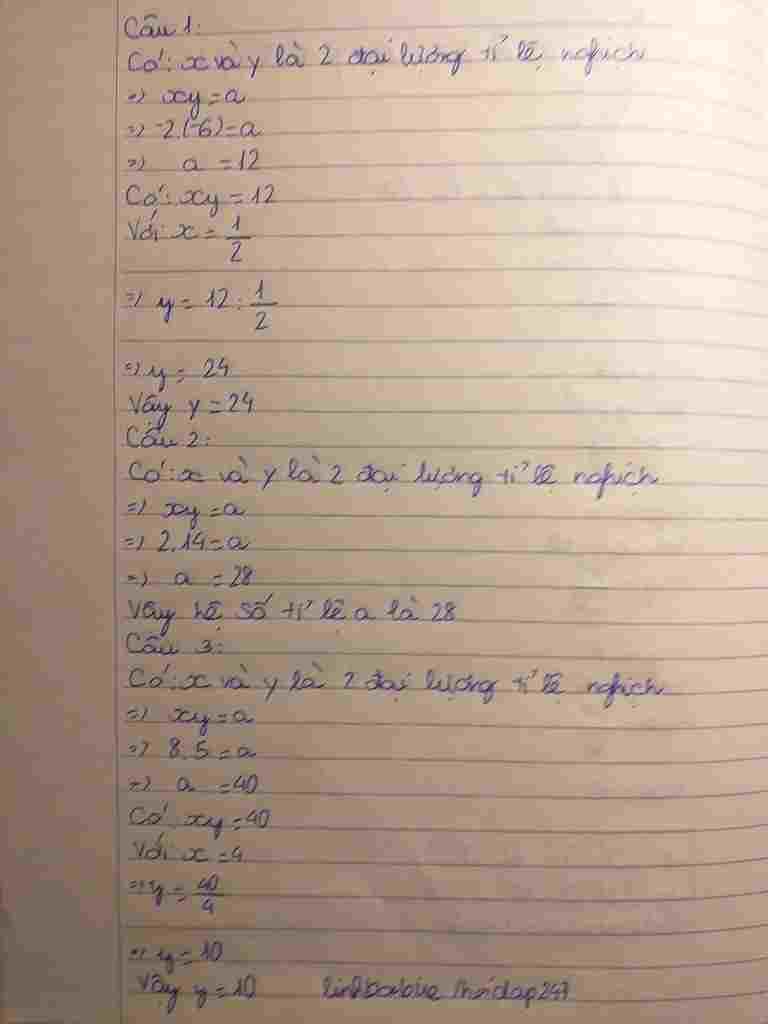 Câu 1:
Có: x và y là 2 đại lượng tỉ lệ nghịch
=> xy = a
=> -2.(-6) = a
=> a = 12
Có: xy = 12
Với x = 1/2
=> y = 12 : 1/2
=> y = 24
Vậy y = 24
Câu 2:
Có: x và y là 2 đại lượng tỉ lệ nghịch
=> xy = a
=> 2.14 = a
=> a = 28
Vậy hệ số tỉ lệ a là 28
Câu 3:
Có: x và y là 2 đại lượng tỉ lệ nghịch
=> xy = a
=> 8.5 = a
=> a = 40
Có: xy = 40
Với x = 4
=> y = 40/4
=> y = 10
Vậy y = 10